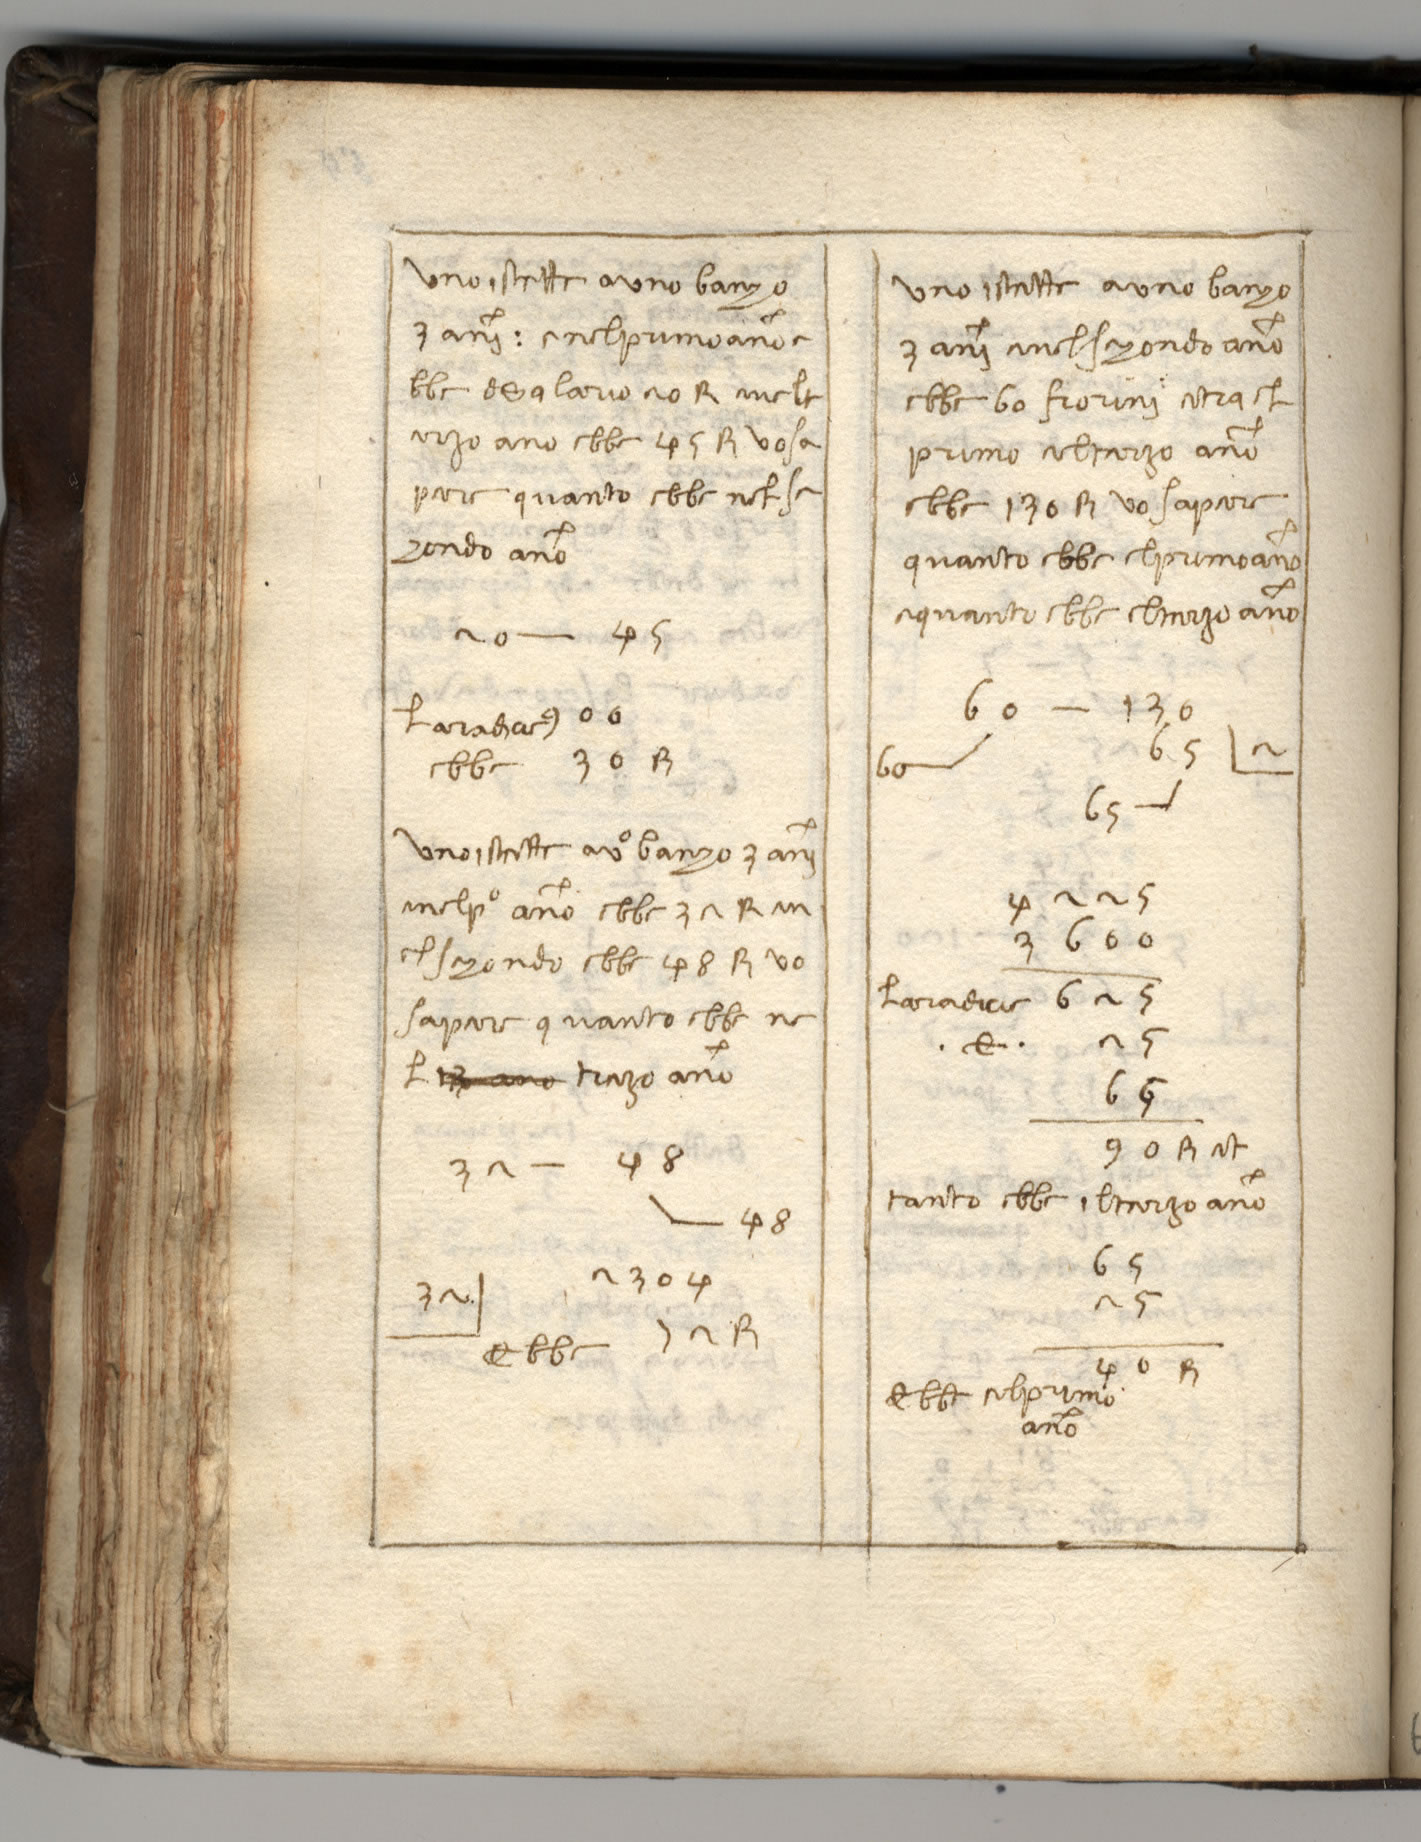 Uno istette a uno bancho
3 anni : e nel primo anno e
bbe di salario 20 R e nel t
erzo ano ebbe 45 R vo sa
pere quanto ebbe nel se
chondo anno
20 — 45
la radice 900
ebbe 30 R
Uno istette a uº bancho 3 anni
e nel pº anno ebbe 32 R e n
el sechondo ebbe 48 R vo
sapere quanto ebbe ne
l terzo anno
32 — 48
48
2304
32
& bbe 72 R
Uno istette a uno bancho
3 anni e nel sechondo anno
ebbe 60 fiorini e tra el
primo e l terzo anno
ebbe 130 R vo sapere
quanto ebbe el primo anno
e quanto ebbe el terzo anno
60 — 130
60 65 2
65
4225
3600
la radice 625
. è . 25
65
90 R et
tanto ebbe il terzo anno
65
25
40 R
& bbe el primo
anno